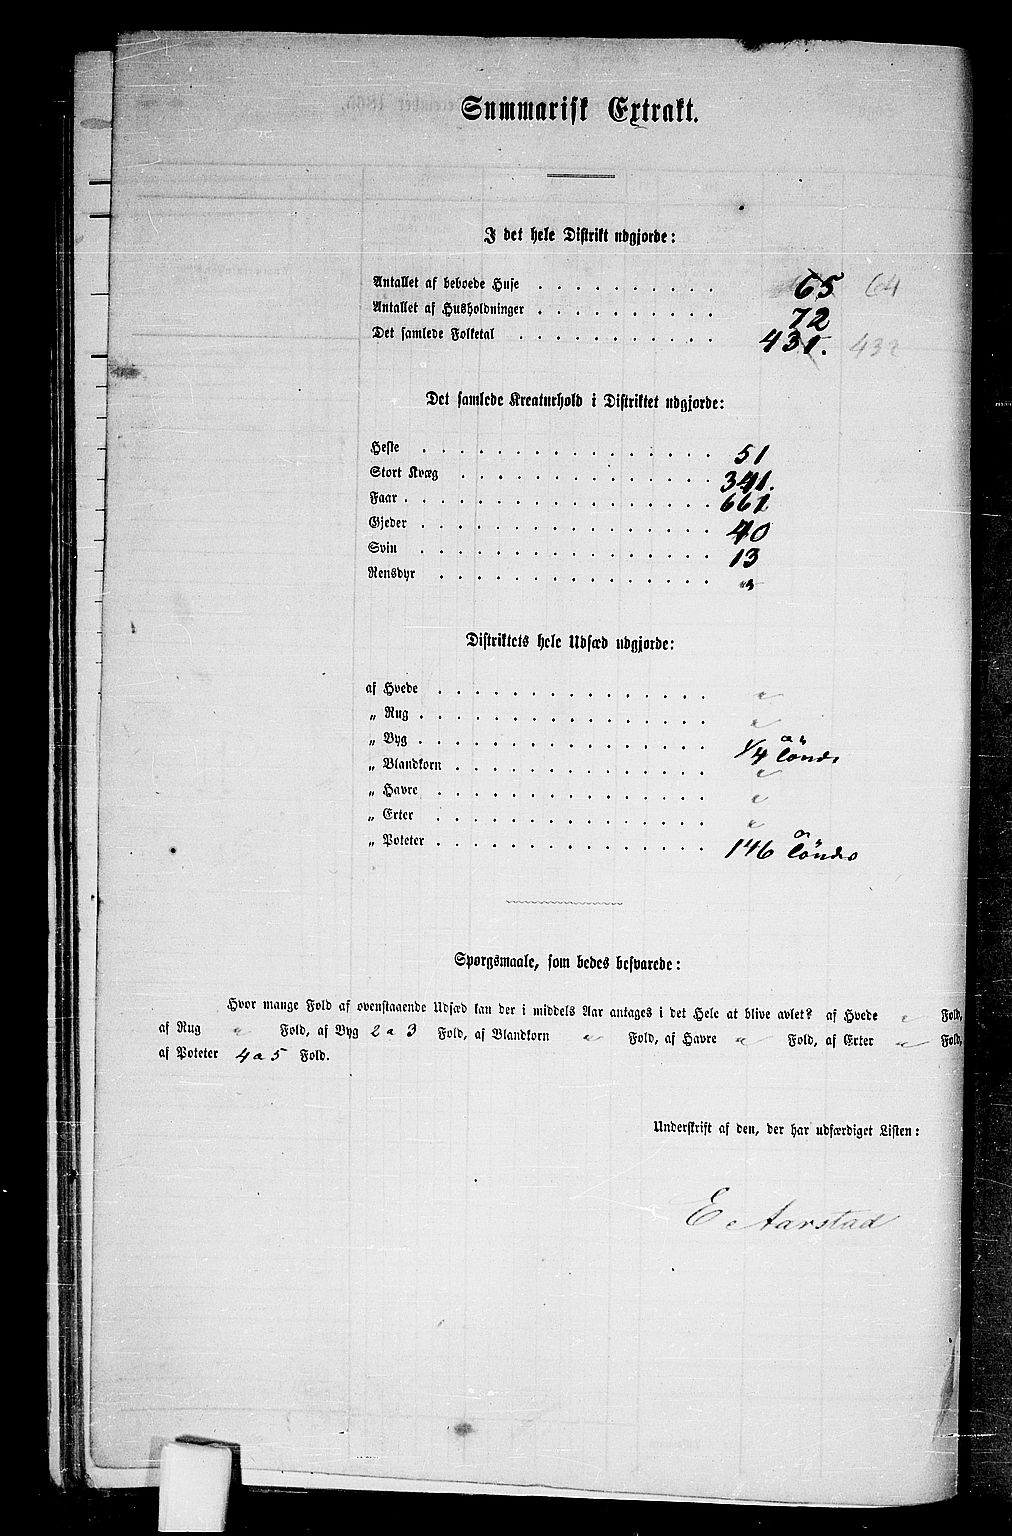 Summarisk Extrakt.
I det hele Distrikt udgjorde:
Antallet af beboede Huse . . . . . . . . . . 65 64
Antallet af Husholdninger . . . . . . . . . . 72
Det samlede Folketal . . . . . . . . . . . 431. 432
Det samlede Kreaturhold i Distriktet udgjorde:
Heste . . . . . . . . . . . . . . . . 51
Stort Kvæg . . . . . . . . . . . . . . 341.
Faar . . . . . . . . . . . . . . . . . 661
Gjeder . . . . . . . . . . . . . . . . 40
Svin . . . . . . . . . . . . . . . . 13
Rensdyr . . . . . . . . . . . . . . . "
Distriktets hele Udsæd udgjorde:
af Hvede . . . . . . . . . . . . . . . "
„ Rug . . . . . . . . . . . . . . . . "
„ Byg . . . . . . . . . . . . . . . . 1/4 Tönde
„ Blandkorn . . . . . . . . . . . . . . "
„ Havre . . . . . . . . . . . . . . . "
„ Erter . . . . . . . . . . . . . . . "
„ Poteter . . . . . . . . . . . . . . . 146 Tönder
Spørgsmaale, som bedes besvarede:
Hvor mange Fold af ovenstaaende Udsæd kan der i middels Aar antages i det Hele at blive avlet? af Hvede " Fold,
af Rug " Fold, af Byg 2 a 3 Fold, af Blandkorn " Fold, af Havre " Fold, af Erter " Fold,
af Poteter 4 a 5 Fold.
Underskrift af den, der har udfærdiget Listen:
E Aarstad